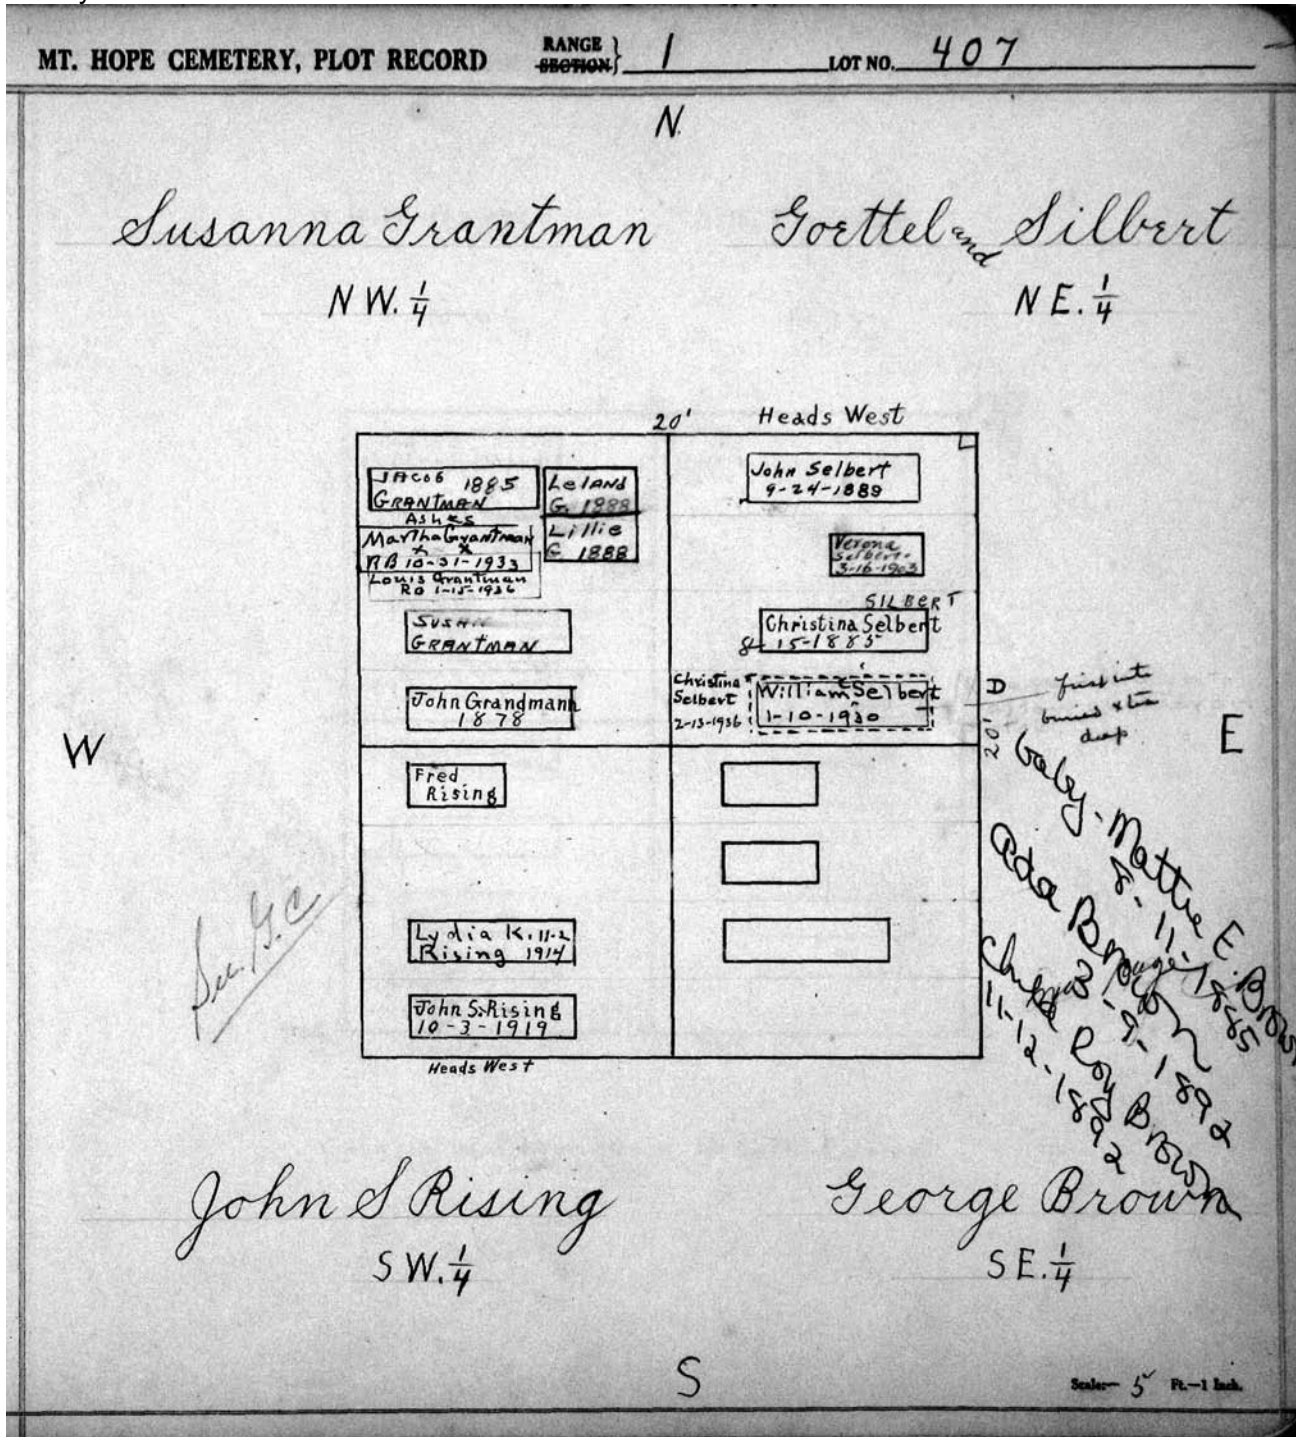 MT. HOPE CEMETERY, PLOT RECORD RANGE SECTION } 1 LOT NO. 407
N.
Susanna Grantman
NW. 1/4
Goettel and Silbert
NE. 1/4
20' Heads West
JACOB 1885
GRANTMAN
ASHES
Martha Grantman
x x
RB 10-31-1933
Louis Grantman
RO 1-15-1936
Leland
G. 1888
Lillie
G 1888
SUSAN
GRANTMAN
John Grandmann
1878
John Selbert
9-24-1889
Verona
Selbert
3-16-1903
SILBERT
Christina Selbert
8-15-1885
Christina
Selbert
2-13-1936
William Selbert
1-10-1930
D
20'
first
buried
deep
W
E
Fred
Rising
Lydia K. 11-2
Rising 1914
John S. Rising
10-3-1919
Heads West
baby- Mattie E. Brown
8-11-1885
Ada Brown
3-9-1892
Roy Brown
11-12-1892
See G.C
John S Rising
SW. 1/4
George Brown
SE. 1/4
S
Scale:— 5 Ft.—1 Inch.